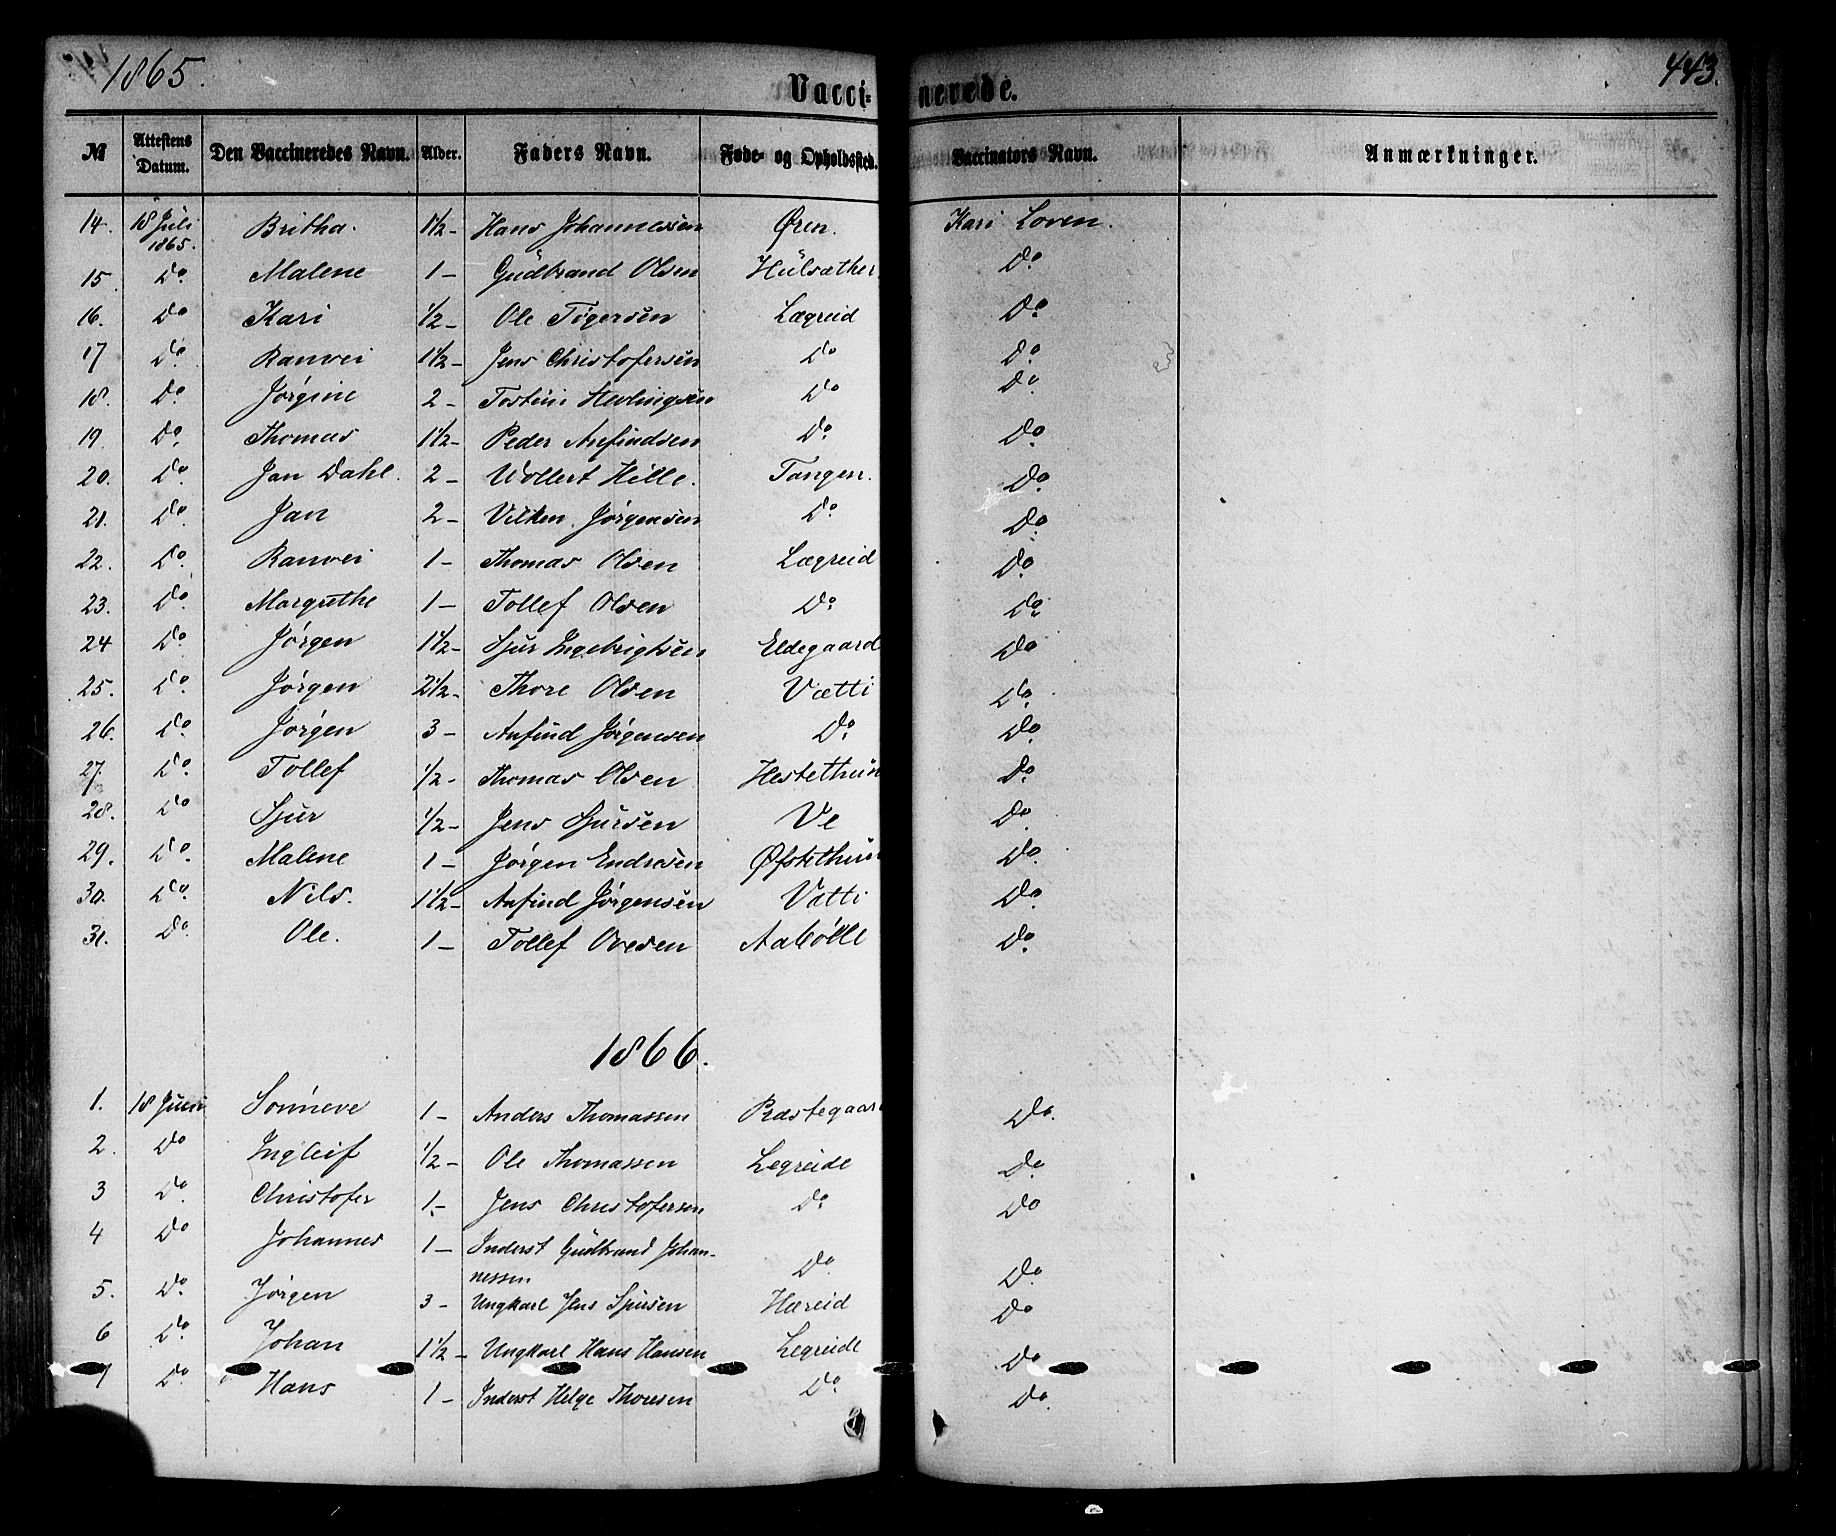 1865.
443.
Vacci- nerede.
№ Attestens Datum. Den Vaccineredes Navn. Alder. Faders Navn. Føde- og Opholdssted. Vaccinators Navn. Anmærkninger.
14. 18 Juli 1865. Britha. 1½- Hans Johannessen Øren. Kari Loven.
15. Do Malene 1- Gudbrand Olsen Hülsæther Do
16. Do Kari ½- Ole Tögersen Lægreid Do
17 Do Ranvei 1½- Jens Christofersen Do Do
18. Do Jørgine 2- Do Do
19. Do Thomas 1½- Peder Anfindsen Do Do
20. Do Jan Dahl. 2- Wollert Hille. Tangen. Do
21. Do Jan 2- Vilken Jørgensen Do Do
22. Do Ranvei 1- Thomas Olsen Lægreid Do
23. Do Margrethe 1- Tollef Olsen Do Do
24 Do Jørgen 1½- Sjur Ingebrigtsen Eldegaard Do
25. Do Jørgen 2½- Thore Olsen Vætti Do
26. Do Jørgen 3- Anfind Jørgensen Do Do
27. Do Tollef ½- Thomas Olsen Hestethun Do
28. Do Sjur ½- Jens Sjursen Ve Do
29. Do Malene 1- Jørgen Endresen Øfstethun Do
30. Do Nils. 1½- Anfind Jørgensen Vætti Do
31. Do Ole. 1- Tollef Ovesen Aabölle Do
1866.
1. 18 Juni Sønneve 1- Anders Thomassen Præstegaard Do.
2. Do Ingleif ½- Ole Thomassen Legreide Do
3 Do Christofer 1.- Jens Christofersen Do Do
4 Do Johannes 1- Inderst Gudbrand Johan-
nessen Do Do
5. Do Jørgen 3- Ungkarl Jens Sjursen Hæreid Do
6 Do Johan 1½- Ungkarl Hans Hansen Legreide Do
7 Do Hans 1- Inderst Helge Thoresen Do Do